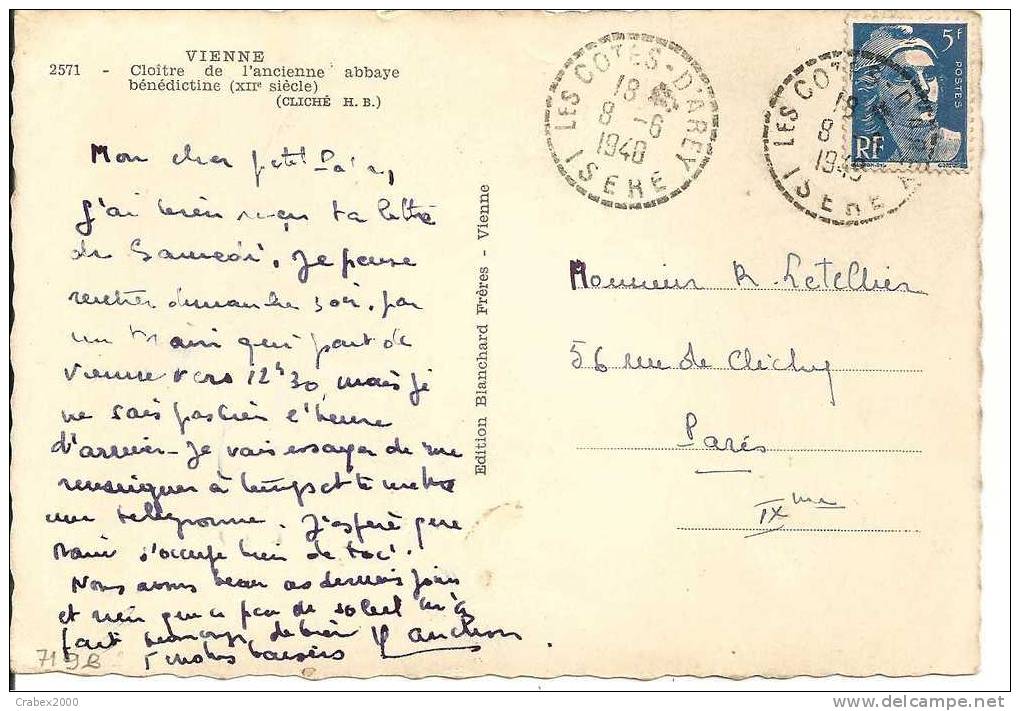 VIENNE
2571 - Cloître de l'ancienne abbaye
bénédictine (XIIe siècle)
(CLICHÉ H. B.)
LES COTES-D'AREY
18
8 -6
1948
ISERE
LES COTES-D'AREY
18
8
1948
ISERE
5f
POSTES
RF
Mon cher petit
J'ai bien reçu ta lettre
de Samedi. Je pense
rentrer dimanche soir, par
un train qui part de
Vienne vers 12h30, mais je
ne sais pas bien l'heure
d'arrivée - Je vais essayer de me
renseigner à temps et te mettre
un télégramme. J'espère que
s'occupe bien de toi.
Nous avons beau ces derniers jours
et rien que ce peu de soleil m'a
fait beaucoup de bien
baisers
Edition Blanchard Frères - Vienne
Monsieur R. Letellier
56 rue de Clichy
Paris
IXme
719B
Crabex2000
www.delcampe.net